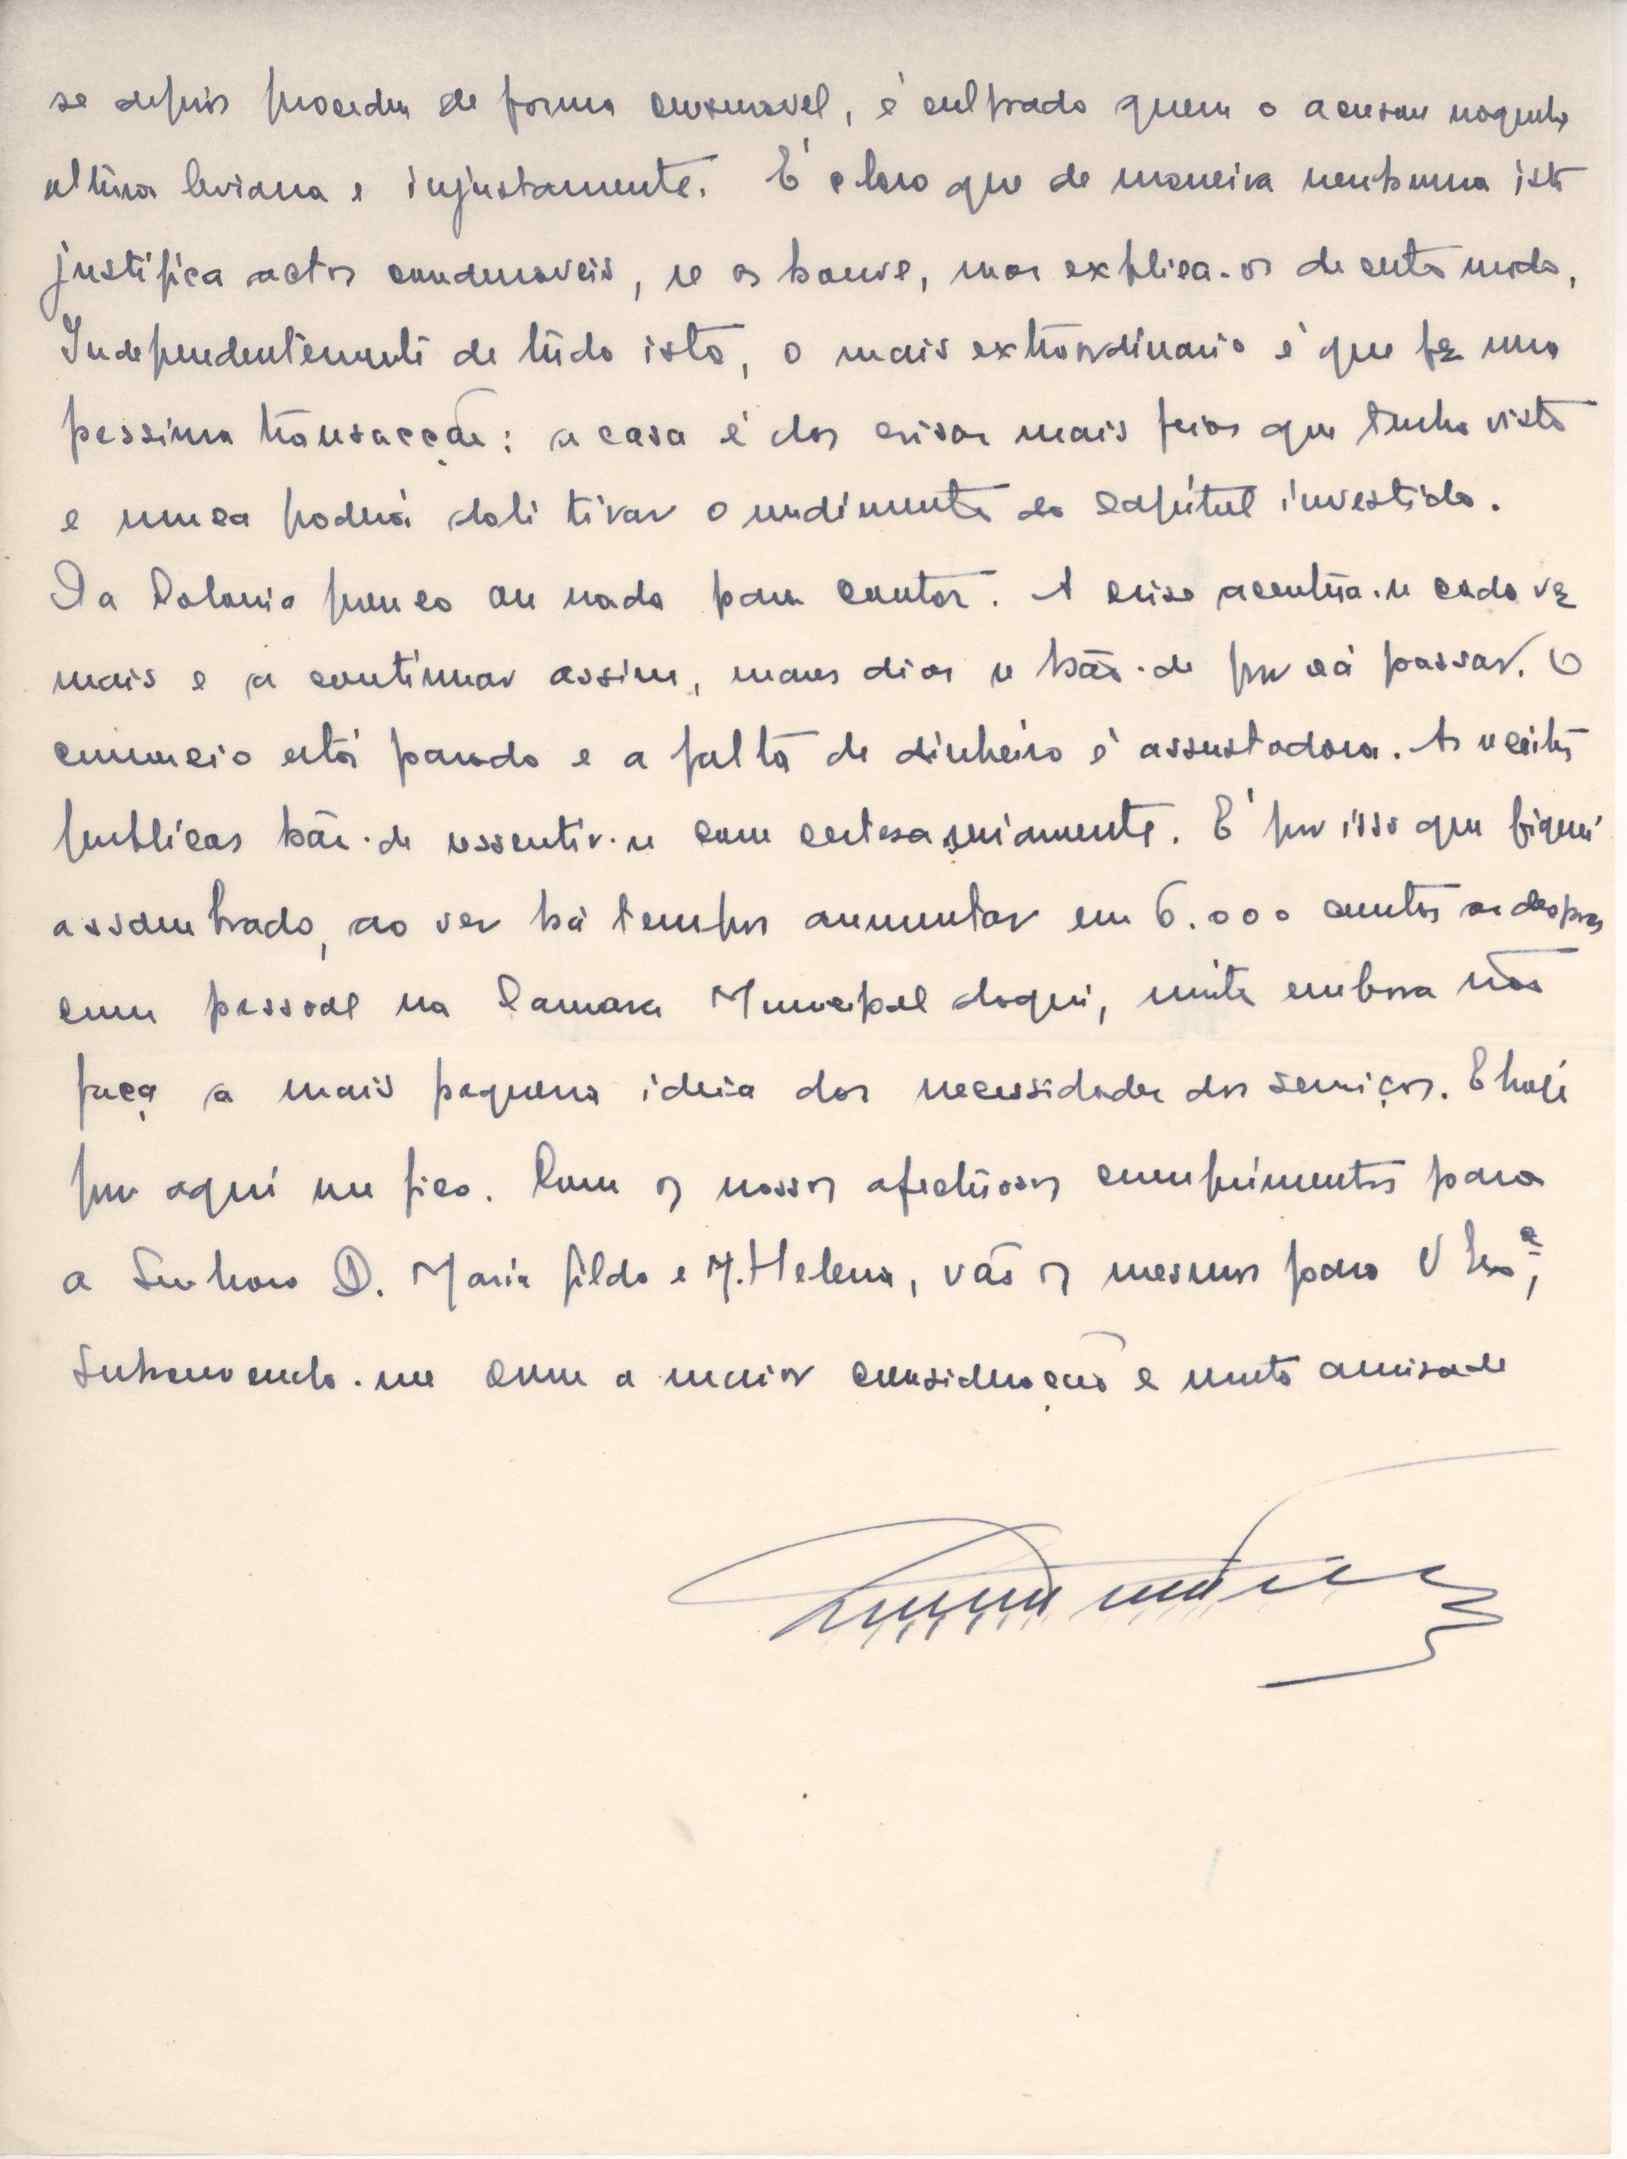 se depois procedeu de forma censuravel, é culpado quem o acusou naquela
altura leviana e injustamente. É claro que de maneira nenhuma isto
justifica actos condenaveis, se os houve, mas explica-os de certo modo.
Independentemente de tudo isto, o mais extraordinario é que fez uma
pessima transacção: a casa é das coisas mais feias que tenho visto
e nunca poderá dali tirar o rendimento do capital investido.
Da Colonia pouco ou nada para contar. A crise acentua-se cada vez
mais e a continuar assim, maus dias se hão-de por cá passar. O
comercio está parado e a falta de dinheiro é assustadora. As receitas
publicas hão-de ressentir-se com certesa seriamente. É por isso que fiquei
assombrado, ao ver há tempos aumentar em 6.000 contos as despesas
com pessoal na Camara Municipal daqui, muito embora não
faça a mais pequena ideia das necessidades dos serviços. E hoje
por aqui me fico. Com os nossos afectuosos cumprimentos para
a Senhora D. Maria Gilda e M. Helena, vão os mesmos para V Exª,
Subscrevendo-me com a maior consideração e muita amisade